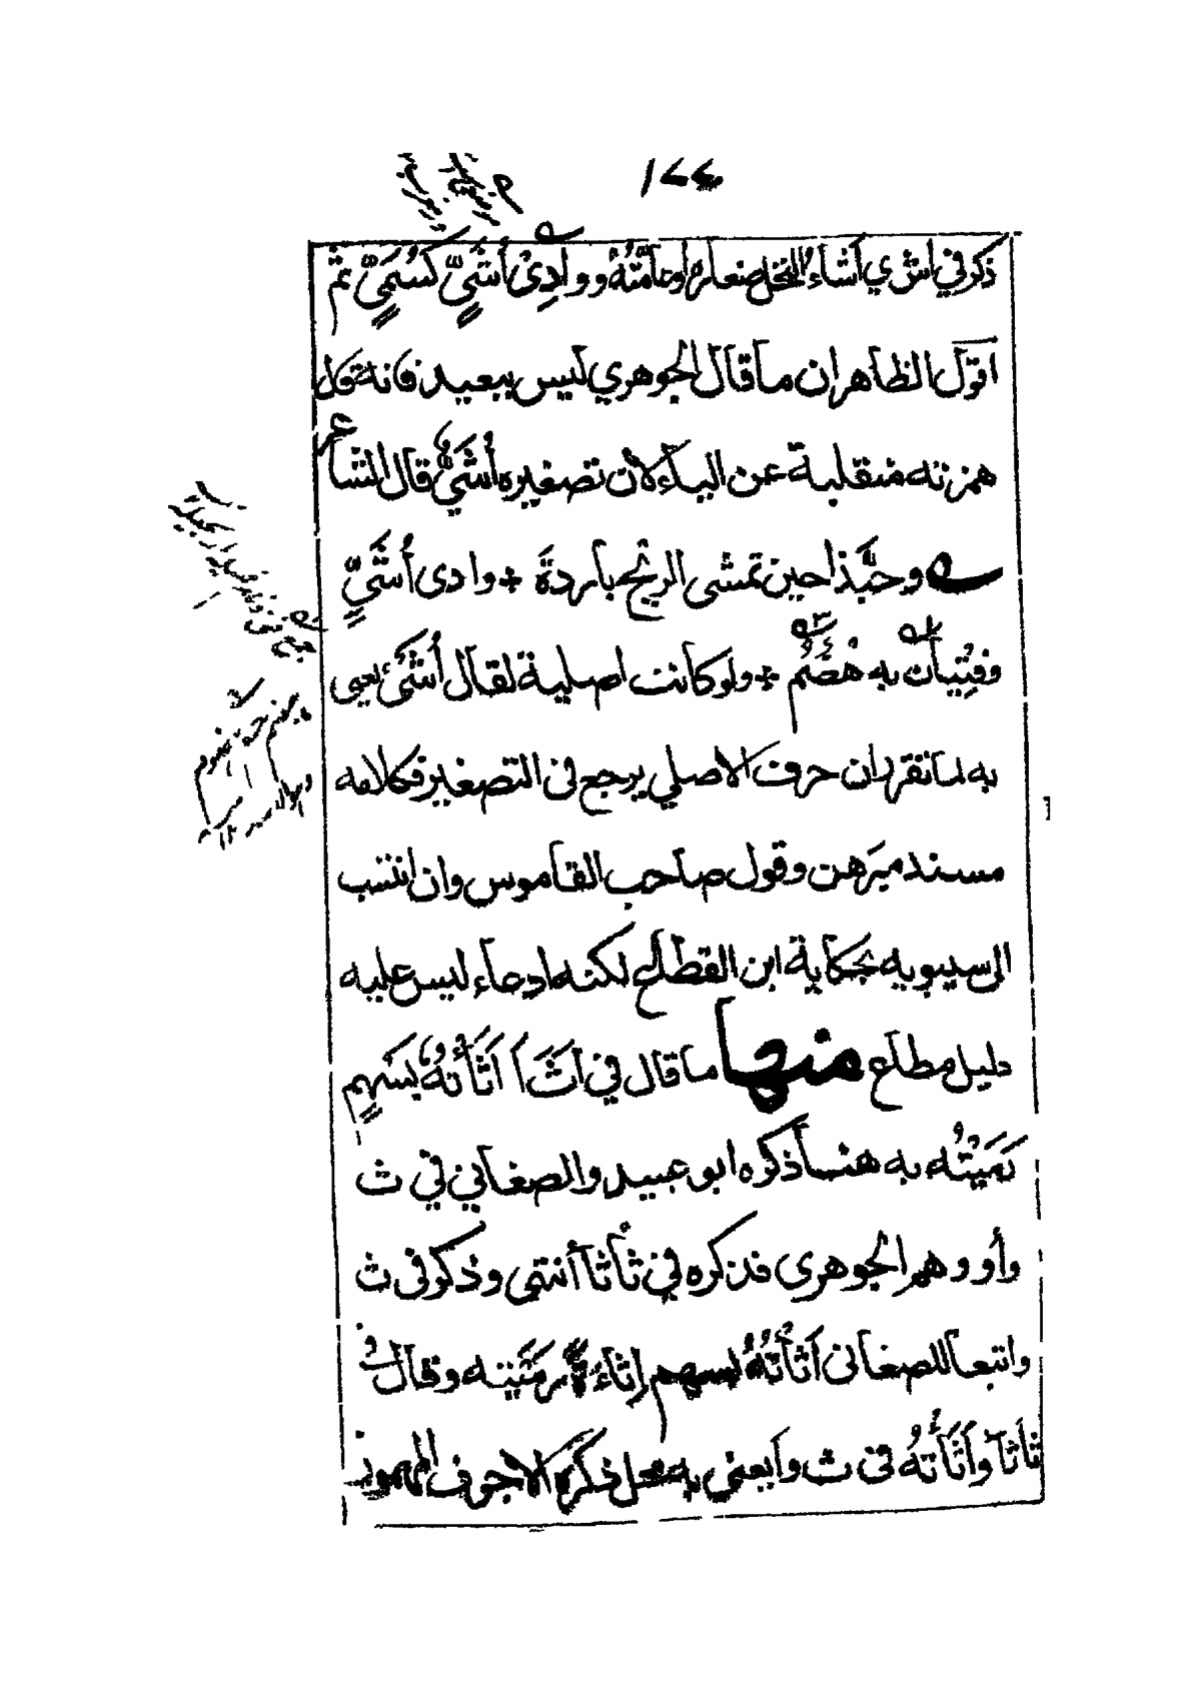 ذكر في اش ي أشاءُ النخل صغاره او عامّتهُ ووادِىْ أُشَيٍّ كَسُمَيٍّ ثم
اقول الظاهر ان ما قال الجوهري ليس ببعيد فانه قال
همزته منقلبة عن الياء لان تصغيره أُشَيٌّ قال الشاعر
وحبَّذا حين تمشى الريح باردةً + وادى أُشَيٍّ
وفِتْيانٌ به هُضُمُ + ولو كانت اصلية لقال أُشَيْئٌ يعنى
به لما تقرر ان حرف الاصلي يرجع فى التصغير فكلامه
مسند مبرهن وقول صاحب القاموس وان انتسب
الى سيبويه بحكاية ابن القطاع لكنه ادعاء ليس عليه
دليل مطلع منها ما قال في اَثَأَ اَثَأْتُهُ بسَهمٍ
رَمَيْتُه به هنا ذكره ابو عبيد والصغاني في ث
وأ ووهم الجوهرى فذكره في ثأثأ أنتهى وذكر فى ث
وا تبعا للصغانى اَثَأْتُهُ بسهم إثاءَةً رميته وقال فى
ثأثأ وأَثَأْتُهُ فى ث وأ يعنى به محل ذكره الاجوف المهموز